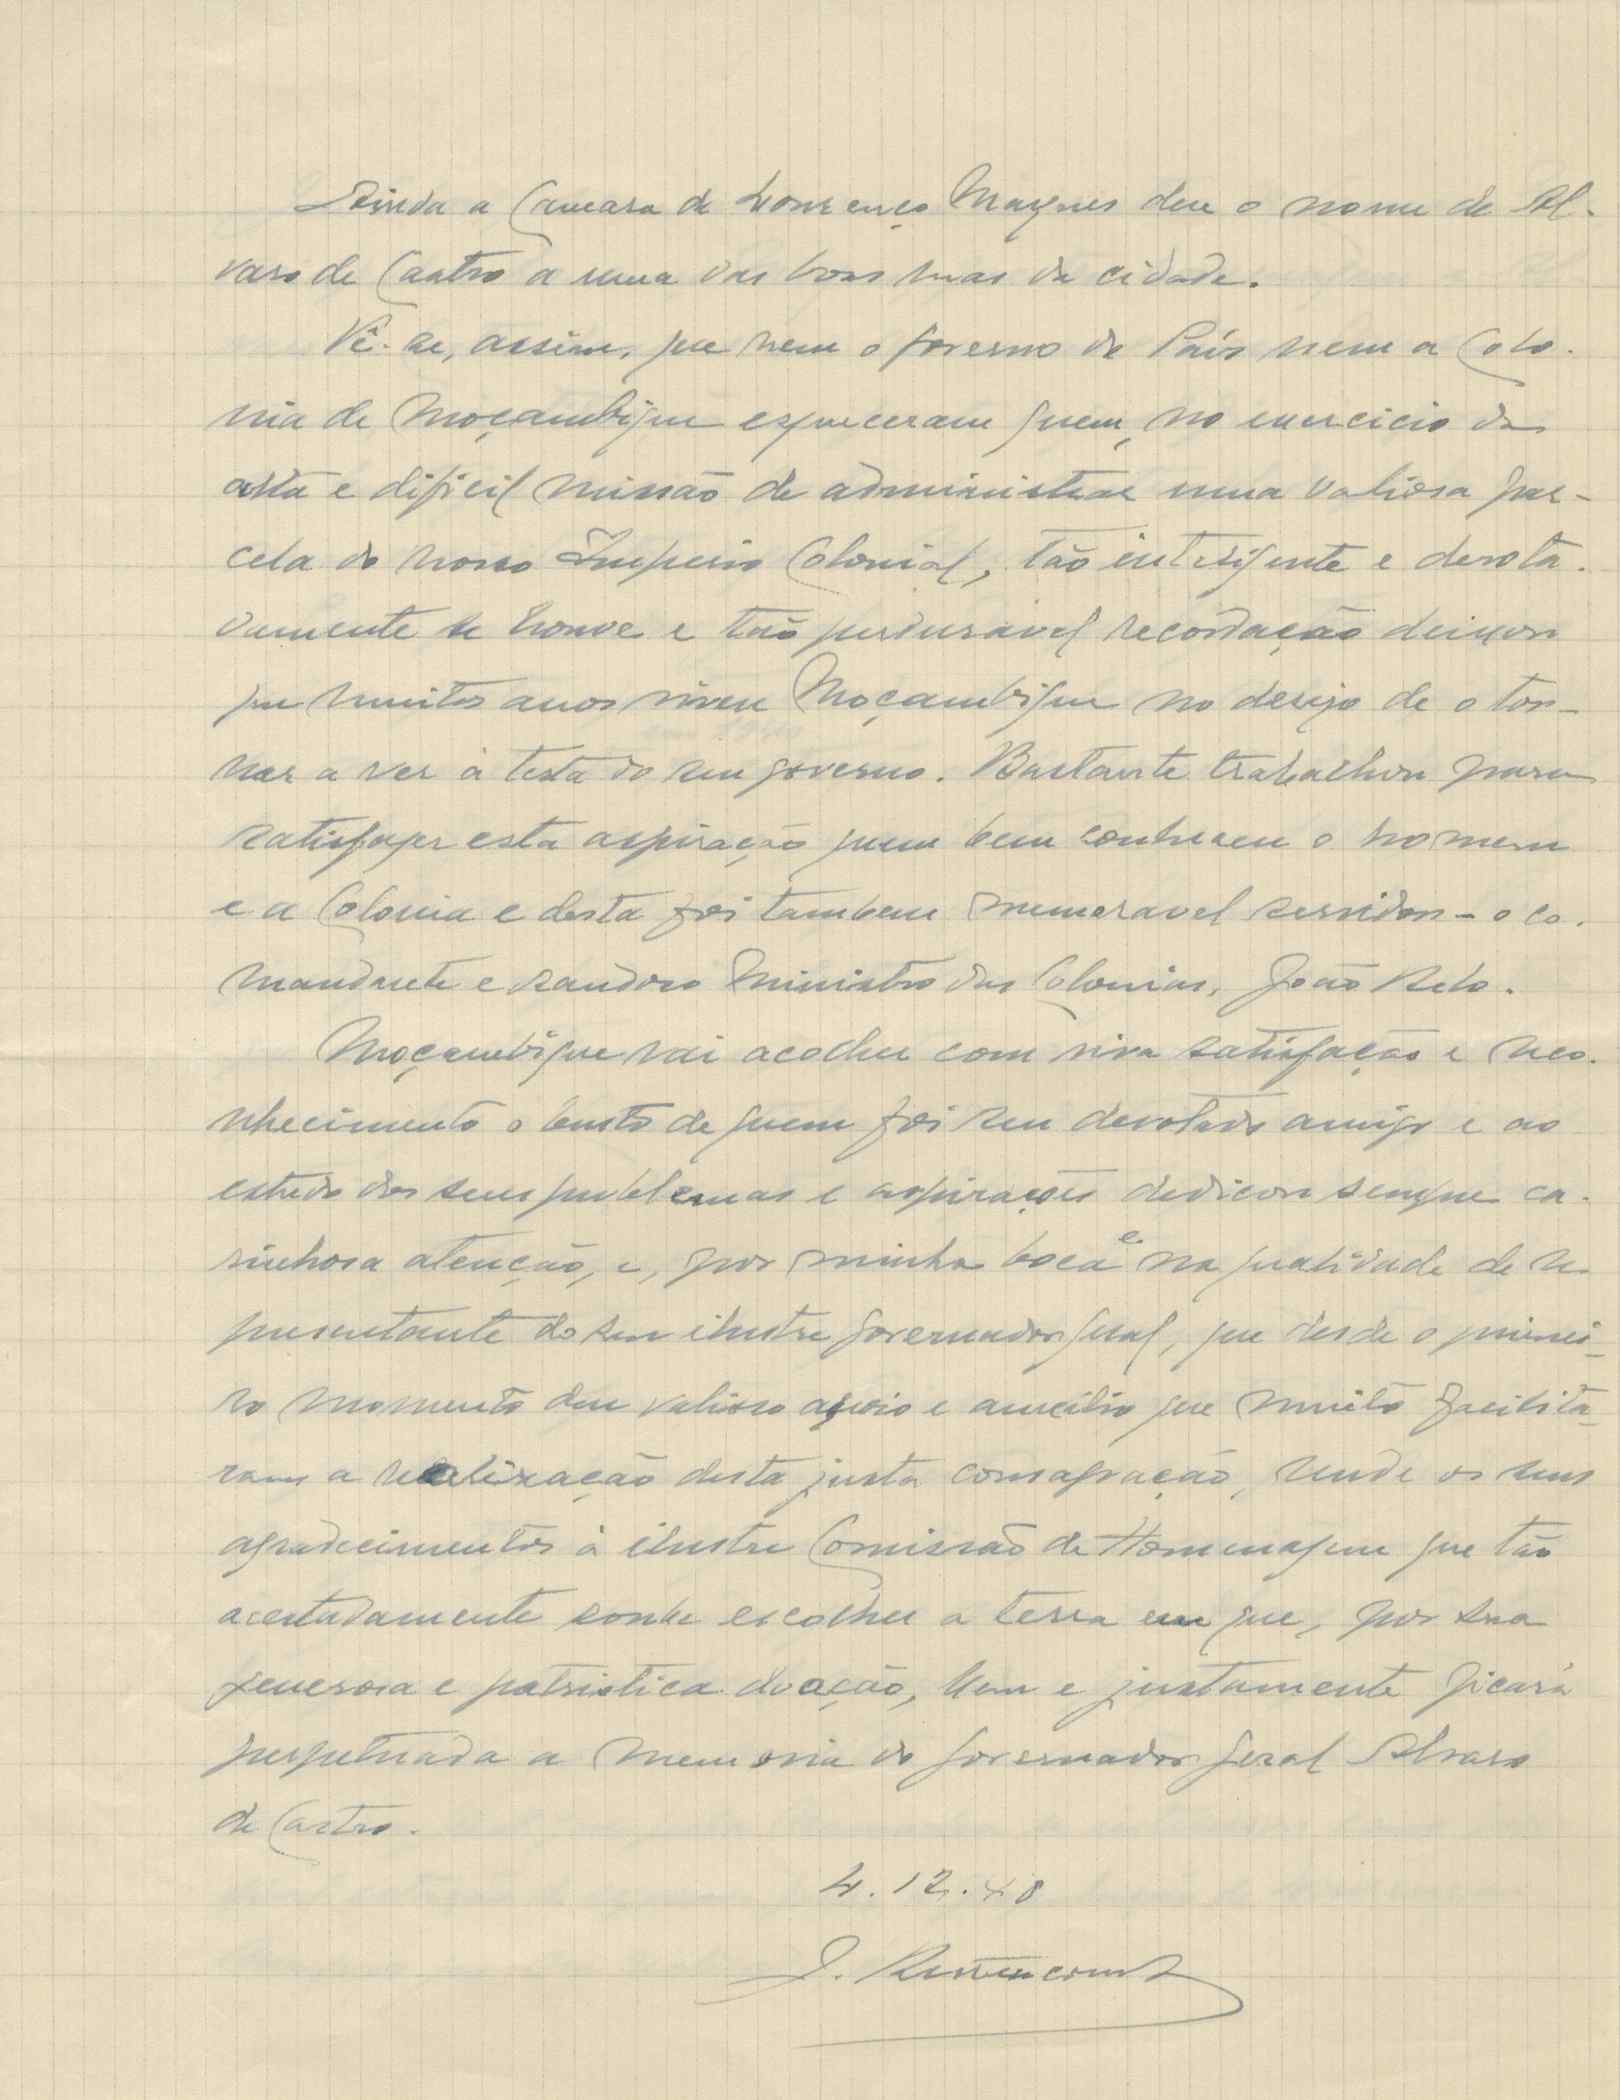 Ainda a Camara de Lourenço Marques deu o nome de Al-
varo de Castro a uma das boas ruas da cidade.
Vê-se, assim, que nem o governo do País nem a Colo-
nia de Moçambique esqueceram quem, no exercicio da
alta e dificil missão de administrar uma valiosa par-
cela do nosso Imperio Colonial, tão inteligente e devota-
damente se houve e tão perduravel recordação deixou
que muitos anos viveu Moçambique no desejo de o tor-
nar a ver à testa do seu governo. Bastante trabalhou para
satisfazer esta aspiração quem bem conheceu o homem
e a Colonia e desta foi tambem memoravel servidor - o co-
mandante e saudoso Ministro das Colonias, João Belo.
Moçambique vai acolher com viva satisfação e reco-
nhecimento o busto de quem foi seu devotado amigo e ao
estudo dos seus problemas e aspirações dedicou sempre ca-
rinhosa atenção, e, por minha boca e na qualidade de re
presentante do seu ilustre governador geral, que desde o primei-
ro momento deu valioso apoio e auxilio que muito facilita-
ram a realização desta justa consagração, rende os seus
agradecimentos à ilustre Comissão de Homenagem que tão
acertadamente soube escolher a terra em que, por sua
generosa e patriotica doação, bem e justamente ficará
perpetuada a memoria do governador geral Alvaro
de Castro.
4.12.48
J. Bettencourt